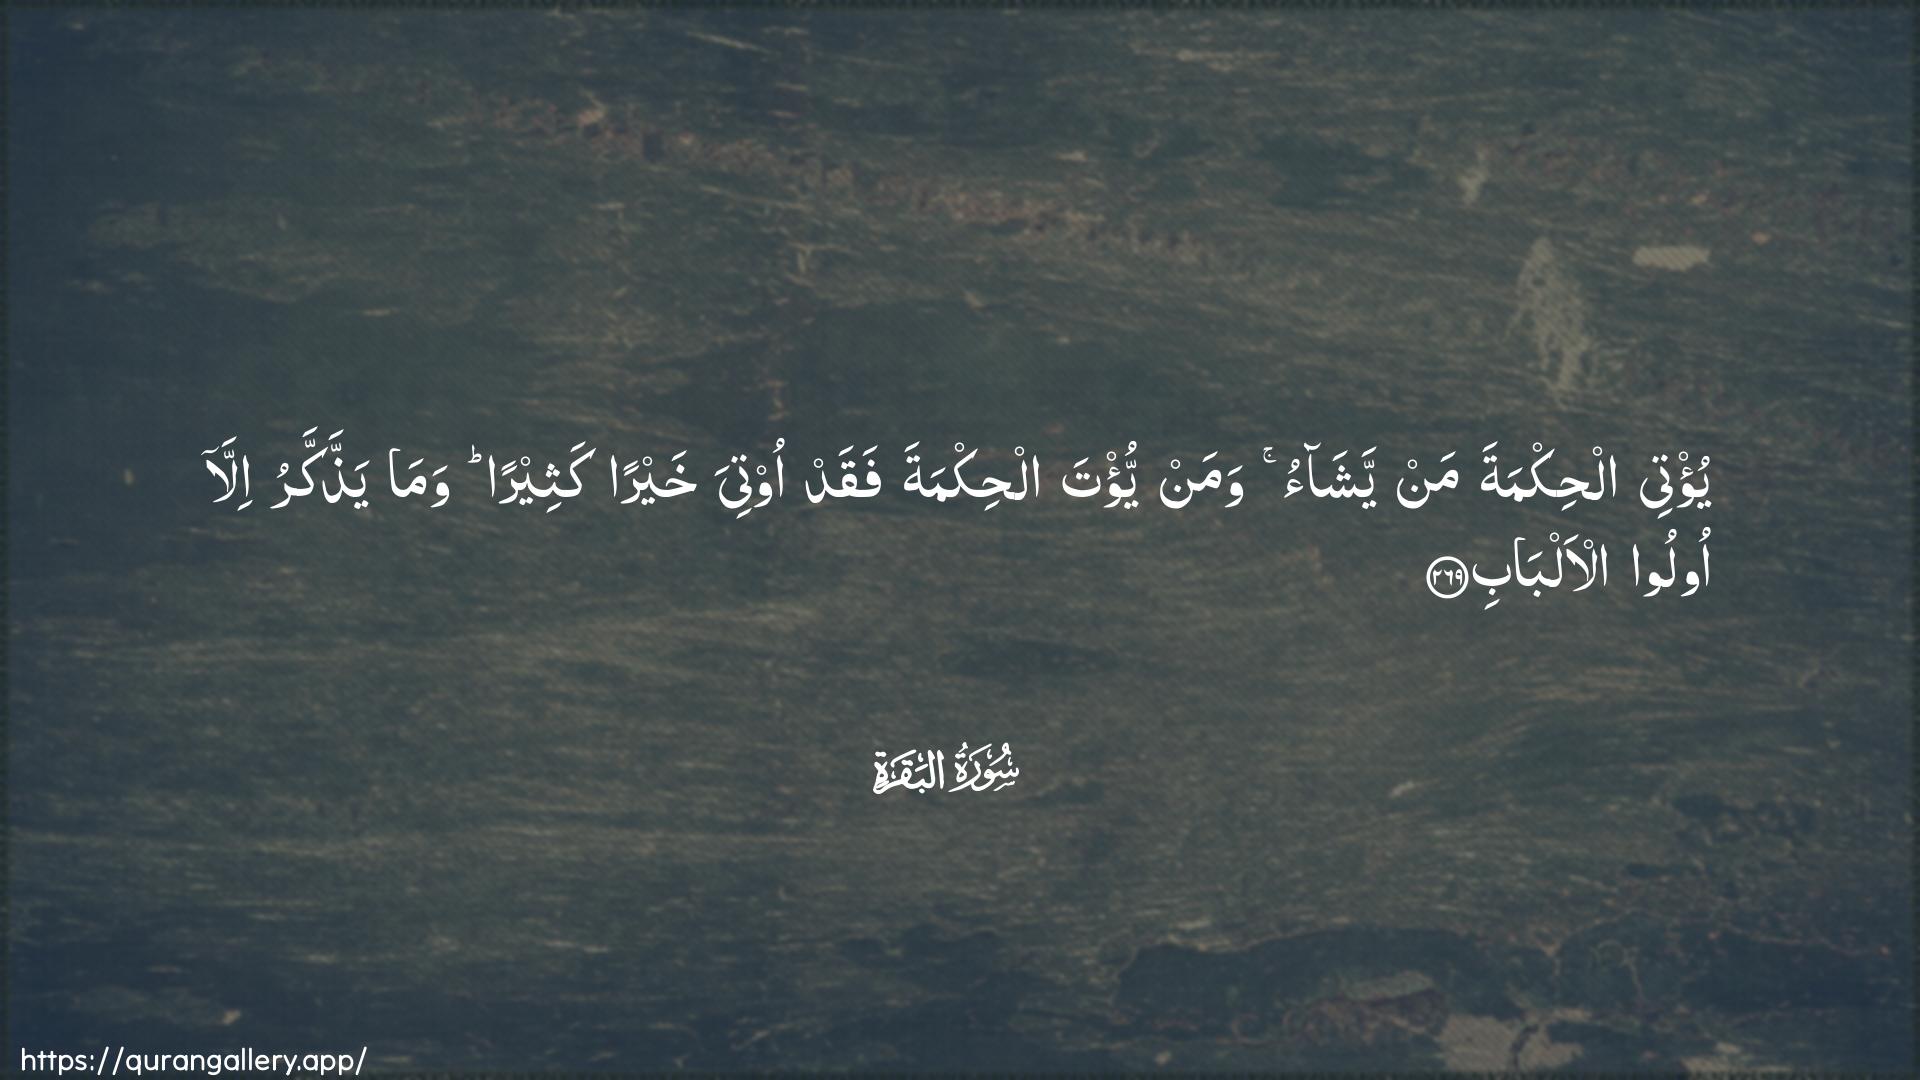 يُؤْتِى الْحِكْمَةَ مَنْ يَّشَآءُ ۚ وَمَنْ يُّؤْتَ الْحِكْمَةَ فَقَدْ اُوْتِىَ خَيْرًا كَثِيْرًا ؕ وَمَا يَذَّكَّرُ اِلَّاۤ
اُولُوا الْاَلْبَابِ ۲۶۹
سُوْرَةُ البَقَرَةِ
https://qurangallery.app/